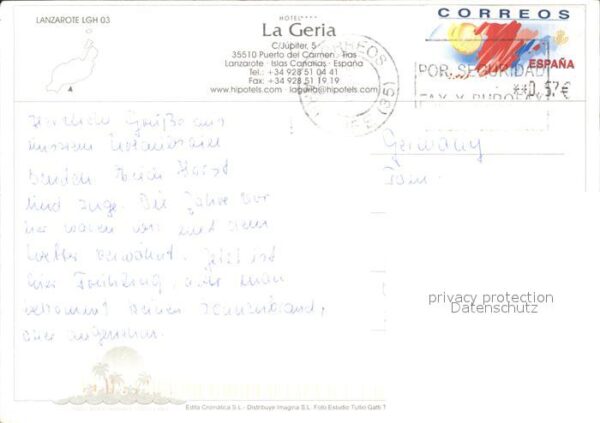 LANZAROTE LGH 03
HOTEL****
La Geria
C/Júpiter, 5
35510 Puerto del Carmen - Tías
Lanzarote - Islas Canarias - España
Tel.: +34 928 51 04 41
Fax: +34 928 51 19 19
www.hipotels.com - lageria@hipotels.com
CORREOS
ESPAÑA
POR SEGURIDAD
**0,57€
CORREOS
(35)
Herzliche Grüße aus
unserem
Horst
sind
Die Jahre vor
her waren wir mit dem
Wetter verwöhnt. Jetzt ist
hier Frühling, aber man
bekommt keinen Sonnenbrand,
aber angenehm.
Germany
privacy protection
Datenschutz
Edita Cromática S.L. - Distribuye Imagina S.L. Foto Estudio Tullio Gatti T